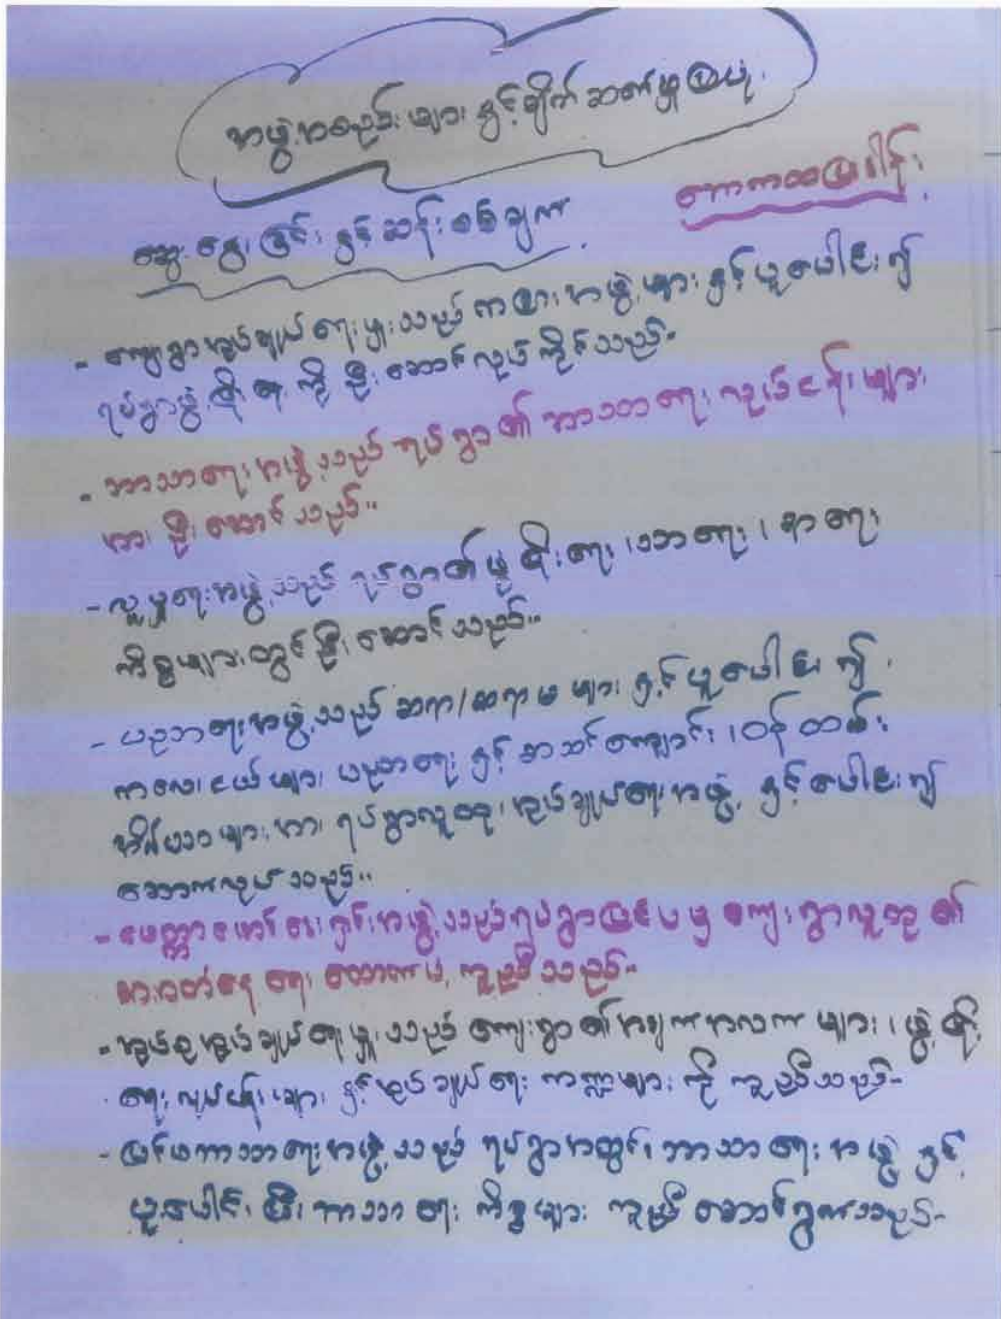 အဖွဲ့အစည်းများနှင့်ချိတ်ဆက်မှုပြပုံ
ကောကထပြရွါန်း
ဆွေးနွေးခြင်းနှင့်ဆန်းစစ်ချက်
- ကျေးရွာအုပ်ချုပ်ရေးမှူးသည် ကခြားအဖွဲ့များနှင့်ပူးပေါင်း၍
ရပ်ရွာဖွံ့ဖြိုးရေးကိုဦးဆောင်လုပ်ကိုင်သည်။
- ဘာသာရေးအဖွဲ့သည် ရပ်ရွာ၏ ဘာသာရေးလုပ်ငန်းများ
အားဦးဆောင်သည်။
- လူမှုရေးအဖွဲ့သည် ရပ်ရွာ၏ဖွံ့ဖြိုးရေး၊သာရေး၊နာရေး
ကိစ္စများတွင်ဦးဆောင်သည်။
- ပညာရေးအဖွဲ့သည် ဆရာ/ဆရာမများနှင့်ပူးပေါင်း၍
ကလေးငယ်များပညာရေးနှင့် စာသင်ကျောင်း၊ဝန်ထမ်း
အိမ်ယာများအား ရပ်ရွာလူထု၊အုပ်ချုပ်ရေးအဖွဲ့နှင့်ပေါင်း၍
ဆောက်လုပ်သည်။
- မေတ္တာဖောင်ဒေးရှင်းအဖွဲ့သည်ရပ်ရွာပြင်ပမှကျေးရွာလူထု၏
စားဝတ်နေရေးထောက်ပံ့ကူညီသည်။
- အုပ်စုအုပ်ချုပ်ရေးမှူးသည် ကျေးရွာ၏အချက်အလက်များ၊ဖွံ့ဖြိုး
ရေးလုပ်ငန်းများနှင့်အုပ်ချုပ်ရေးကဏ္ဍများကိုကူညီသည်-
- ပြင်ပဘာသာရေးအဖွဲ့သည် ရပ်ရွာအတွင်းဘာသာရေးအဖွဲ့နှင့်
ပူးပေါင်းပြီးဘာသာရေးကိစ္စများ ကူညီဆောင်ရွက်သည်-